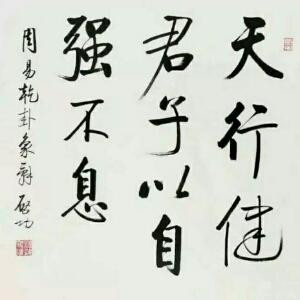 天行健
君子以自
强不息
周易乾卦象辞 启功